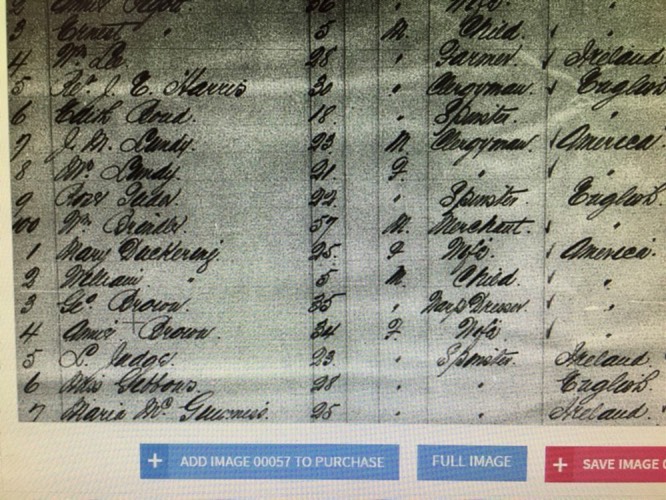 2 Annie 36 " Wife
3 Ernest " " M. Child. "
4 Wm Lee 28 " Farmer. Ireland
5 Rev. J. E. Harris 30 " Clergyman. English
6 Edith Bond. 18. " Spinster. "
7 J. M. Landy. 23 M Clergyman. America.
8 Mrs Landy. 21 F. " "
9 Rose 22 " Spinster English.
100 Wm 57 M. Merchant. "
1 Mary Dackering. 25. F Wife America.
2 William " 5 M. Child. "
3 Geo Brown. 35 " Warp Dresser "
4 Annie Brown. 34 F. Wife "
5 L. Judge. 23. " Spinster. Ireland.
6 Miss Gibbons. 28 " " English
7 Maria Mc 25 " " Ireland.
+ ADD IMAGE 00057 TO PURCHASE
FULL IMAGE
+ SAVE IMAGE